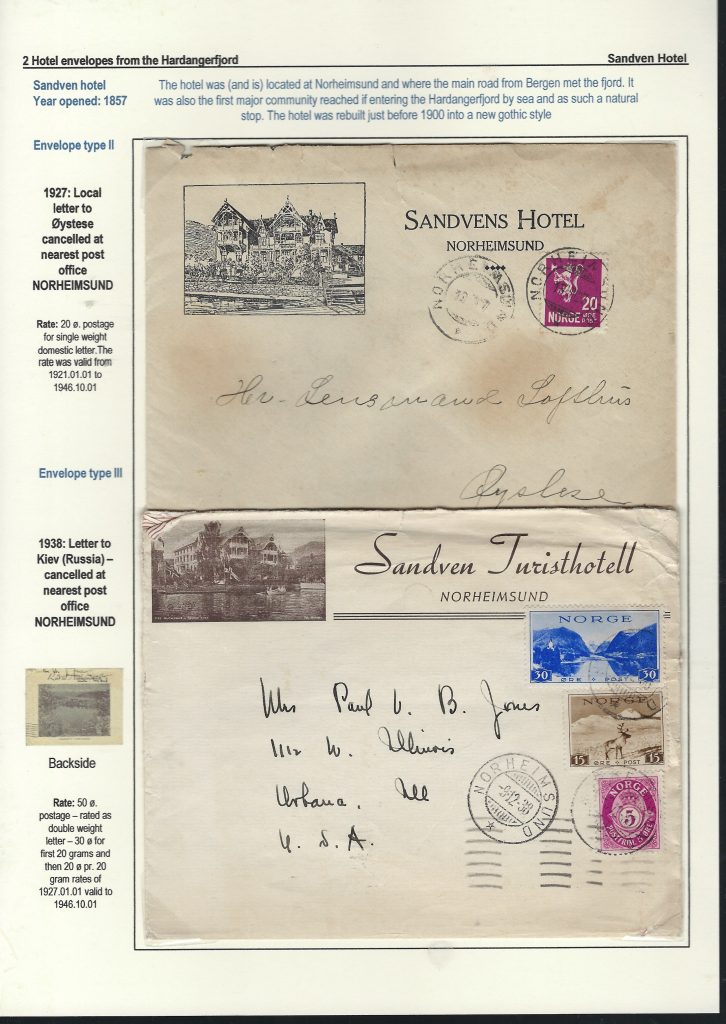 2 Hotel envelopes from the Hardangerfjord
Sandven Hotel
Sandven hotel
Year opened: 1857
The hotel was (and is) located at Norheimsund and where the main road from Bergen met the fjord. It
was also the first major community reached if entering the Hardangerfjord by sea and as such a natural
stop. The hotel was rebuilt just before 1900 into a new gothic style
Envelope type II
1927: Local
letter to
Øystese
cancelled at
nearest post
office
NORHEIMSUND
Rate: 20 ø. postage
for single weight
domestic letter.The
rate was valid from
1921.01.01 to
1946.10.01
SANDVENS HOTEL
NORHEIMSUND
NORHEIMSUND
NORHEIMSUND
20
NORGE
Hr. Lensmand Lofthus
Øystese
Envelope type III
1938: Letter to
Kiev (Russia) –
cancelled at
nearest post
office
NORHEIMSUND
Backside
Rate: 50 ø.
postage – rated as
double weight
letter – 30 ø for
first 20 grams and
then 20 ø pr. 20
gram rates of
1927.01.01 valid to
1946.10.01
Sandven Turisthotell
NORHEIMSUND
NORGE
30 ØRE POST 30
NORGE
15 ØRE POST 15
NORGE
5
Mrs Paul V. B. Jones
1112 W. Illinois
Urbana, Ill
U. S. A.
NORHEIMSUND
-3.12.38